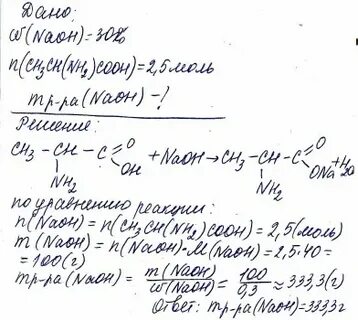 Дано:
ω(NaOH)=30%
n(CH₃CH(NH₂)COOH)=2,5моль
mр-ра(NaOH)-?
Решение:
CH₃-CH-C=O OH +NaOH→CH₃-CH-C=O ONa+H₂O
NH₂ NH₂
по уравнению реакции:
n(NaOH)=n(CH₃CH(NH₂)COOH)=2,5(моль)
m(NaOH)=n(NaOH)·M(NaOH)=2,5·40=
=100(г)
mр-ра(NaOH)=m(NaOH)/ω(NaOH)=100/0,3≈333,3(г)
Ответ: mр-ра(NaOH)=333,3г